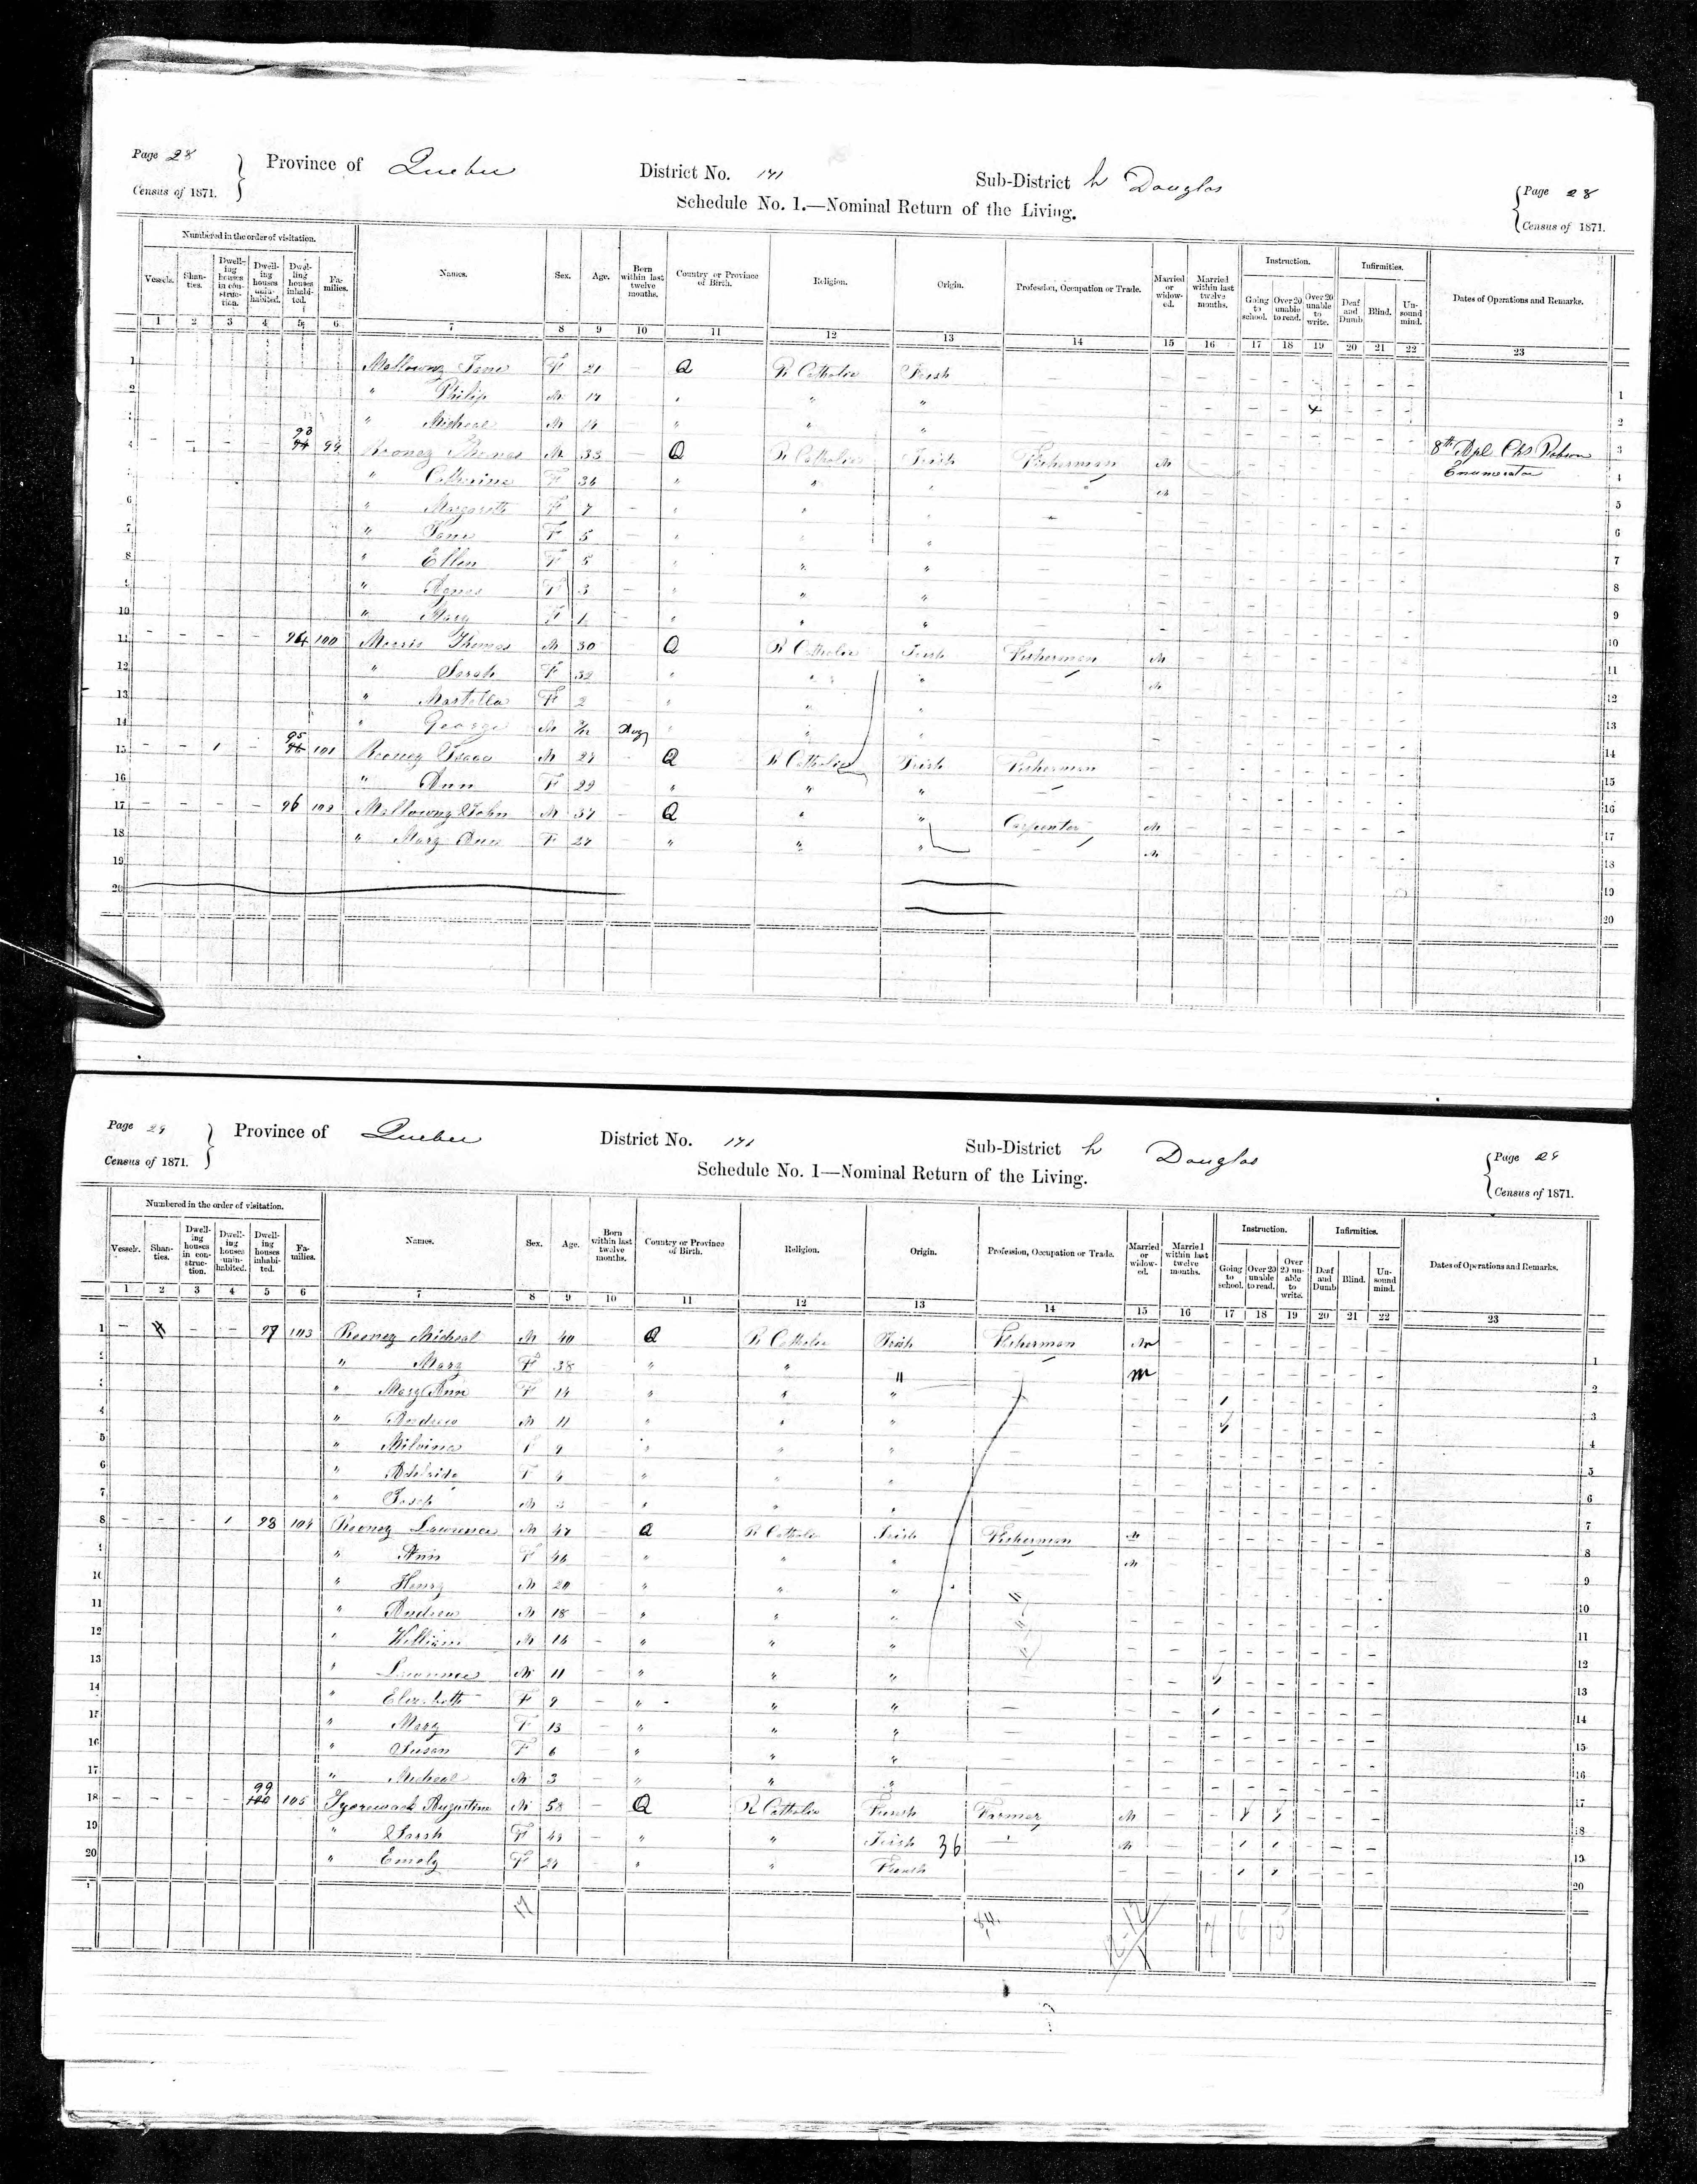 Page 28 Province of Quebec District No. 141 Sub-District h Douglas Page 28
Census of 1871. Schedule No. 1.—Nominal Return of the Living. Census of 1871.
Numbered in the order of visitation. Instruction. Infirmities.
Vessels. Shanties. Dwelling houses in construction. Dwelling houses uninhabited. Dwelling houses inhabited. Families. Names. Sex. Age. Born within last twelve months. Country or Province of Birth. Religion. Origin. Profession, Occupation or Trade. Married or widowed. Married within last twelve months. Going to school. Over 20 unable to read. Over 20 unable to write. Deaf and Dumb. Blind. Unsound mind. Dates of Operations and Remarks.
1 2 3 4 5 6 7 8 9 10 11 12 13 14 15 16 17 18 19 20 21 22 23
1 Jane F 21 — Q R Catholic Irish — 1
2 " Philip M " " " — 2
3 " Micheal M " " " — 3
4 93 99 Rooney Thomas M 33 — Q R Catholic Irish Fisherman M 8th Apl Chs Enumerator 4
" Catherine F 36 " " " M 5
6 " Margarett F 7 — " " " — 6
7 " Jane F 5 " " " — 7
8 " Ellen F 5 " " " — 8
" Agnes F 3 — " " " — 9
10 " Mary F 1 " " " — 10
11 — — — — 94 100 Morris Thomas M 30 — Q R Catholic Irish Fisherman M 11
12 " Sarah F 32 " " " — M 12
13 " F 2 " " " — 13
14 " George M Aug " " " — 14
15 — — 1 — 95 101 Rooney Isaac M 27 — Q R Catholic Irish Fisherman 15
16 " Ann F 29 " " " — 16
17 — — — — 96 102 John M 37 — Q " " Carpenter M 17
18 " Mary Ann F 27 — " " " — M 18
19 19
20 20
Page 29 Province of Quebec District No. 141 Sub-District h Douglas Page 29
Census of 1871. Schedule No. 1—Nominal Return of the Living. Census of 1871.
Numbered in the order of visitation. Instruction. Infirmities.
Vessels. Shanties. Dwelling houses in construction. Dwelling houses uninhabited. Dwelling houses inhabited. Families. Names. Sex. Age. Born within last twelve months. Country or Province of Birth. Religion. Origin. Profession, Occupation or Trade. Married or widowed. Married within last twelve months. Going to school. Over 20 unable to read. Over 20 unable to write. Deaf and Dumb Blind. Unsound mind. Dates of Operations and Remarks.
1 2 3 4 5 6 7 8 9 10 11 12 13 14 15 16 17 18 19 20 21 22 23
1 — — — 97 103 Rooney Micheal M 40 Q R Catholic Irish Fisherman M 1
" Mary F 38 " " " — M 2
" Mary Ann F 14 " " " — 1 3
4 " Andrew M 11 " " " — 1 4
5 " Milvina F 9 " " " — 5
6 " Adelaide F " " " — 6
7 " Joseph M 3 " " " — 7
8 — — — 1 98 104 Rooney Lawrence M 47 Q R Catholic Irish Fisherman M 8
9 " Ann F 46 " " " — M 9
10 " Henry M 20 " " " " 10
11 " Andrew M 18 — " " " " 11
12 " William M 16 — " " " " 12
13 " Lawrence M 11 — " " " — 1 13
14 " Elizabeth F 9 — " " " — 1 14
15 " Mary F 13 " " " — 15
16 " Susan F 6 " " " — 16
17 " Micheal M 3 — " " " — 17
18 — — — — 99 105 Augustine M 58 — Q R Catholic French Farmer M 1 1 18
19 " Sarah F 49 — " " Irish 36 M 1 1 19
20 " Emely F 27 — " " French — 1 1 20